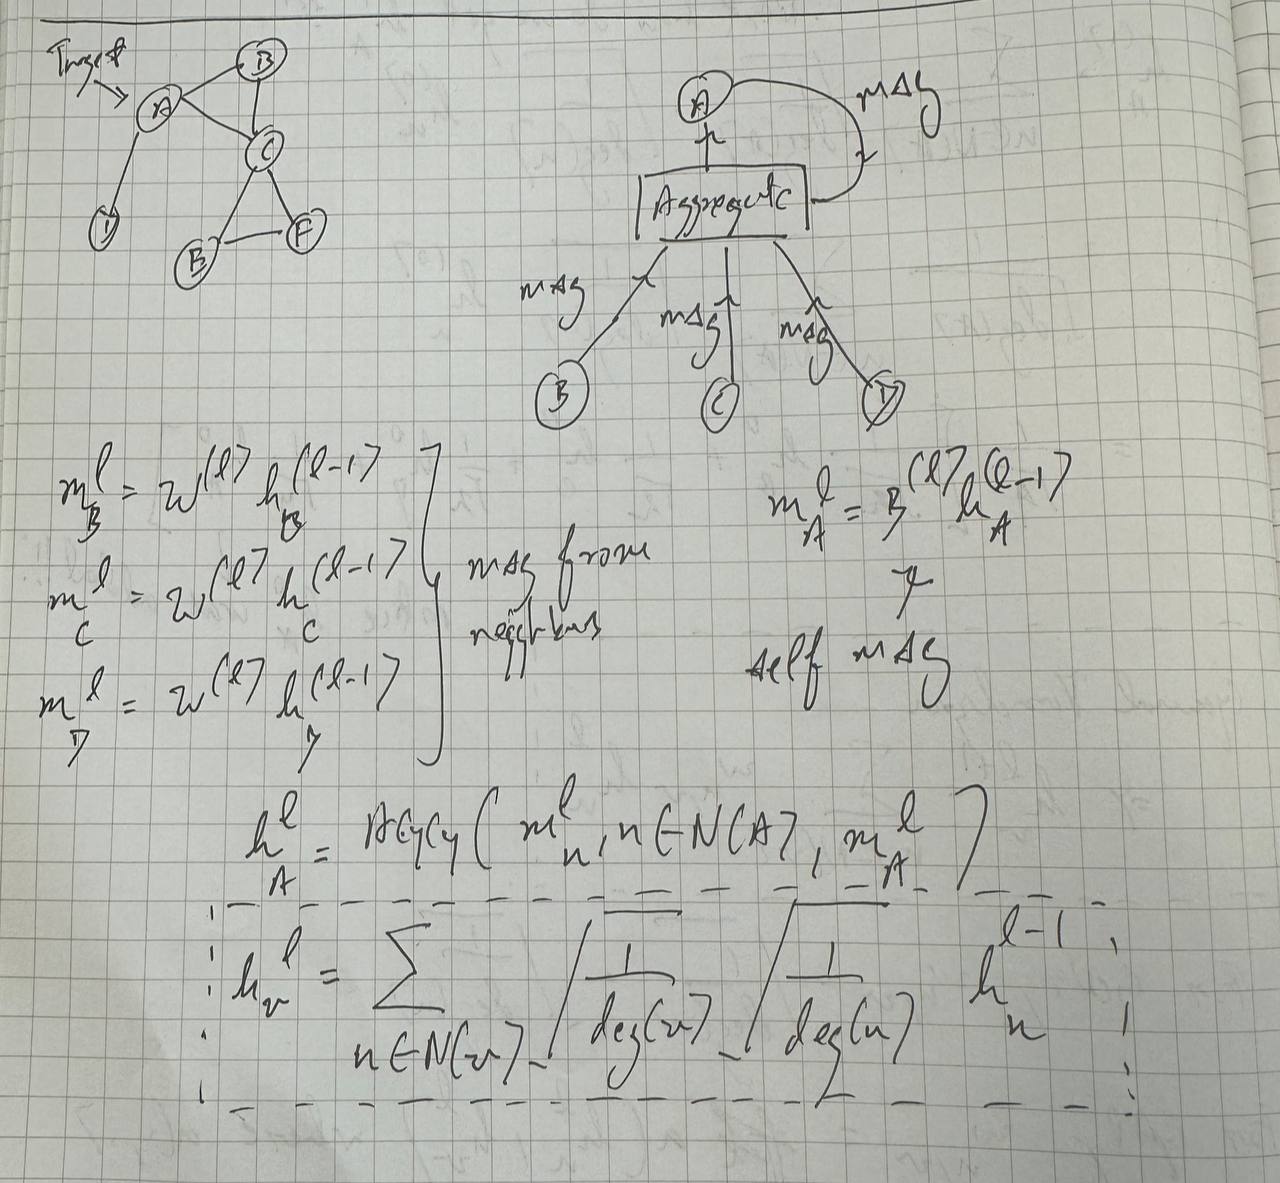 Target
A
B
C
D
B
F
A
msg
Aggregate
msg
msg
msg
B
C
D
m_B^l = W^(l) h_B^(l-1)
m_C^l = W^(l) h_C^(l-1)
m_D^l = W^(l) h_D^(l-1)
msg from
neighbors
m_A^l = B^(l) h_A^(l-1)
self msg
h_A^l = AGG( m_u^l, u ∈ N(A), m_A^l )
h_v^l = Σ_{u ∈ N(v)} √(1/deg(v)) √(1/deg(u)) h_u^{l-1}